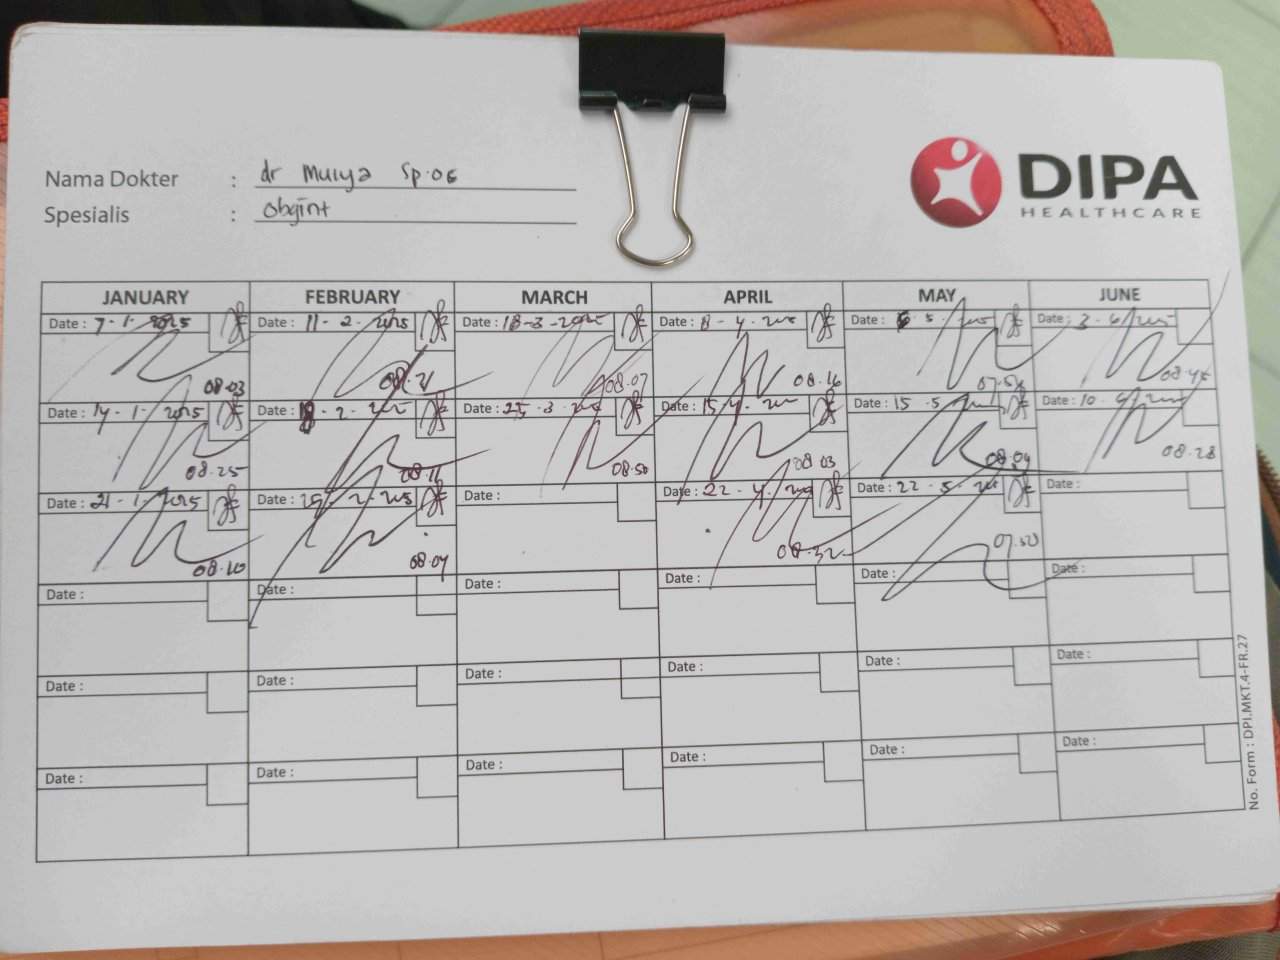 Nama Dokter : dr Mulya Sp.OG
Spesialis : Obgint
DIPA
HEALTHCARE
JANUARY FEBRUARY MARCH APRIL MAY JUNE
Date : 7-1-2025 Date : 11-2-2025 Date : 18-3-2025 Date : 8-4-2025 Date : 6-5-2025 Date : 3-6-2025
08.03 08.21 08.07 08.16 08.45
Date : 14-1-2025 Date : 18-2-2025 Date : 25-3-2025 Date : 15-4-2025 Date : 15-5-2025 Date : 10-6-2025
08.25 08.50 08.03 08.04 08.28
Date : 21-1-2025 Date : 25-2-2025 Date : Date : 22-4-2025 Date : 22-5-2025 Date :
08.10 08.04 08.32 07.50
Date : Date : Date : Date : Date : Date :
Date : Date : Date : Date : Date : Date :
Date : Date : Date : Date : Date : Date :
No. Form : DPI.MKT.4-FR.27